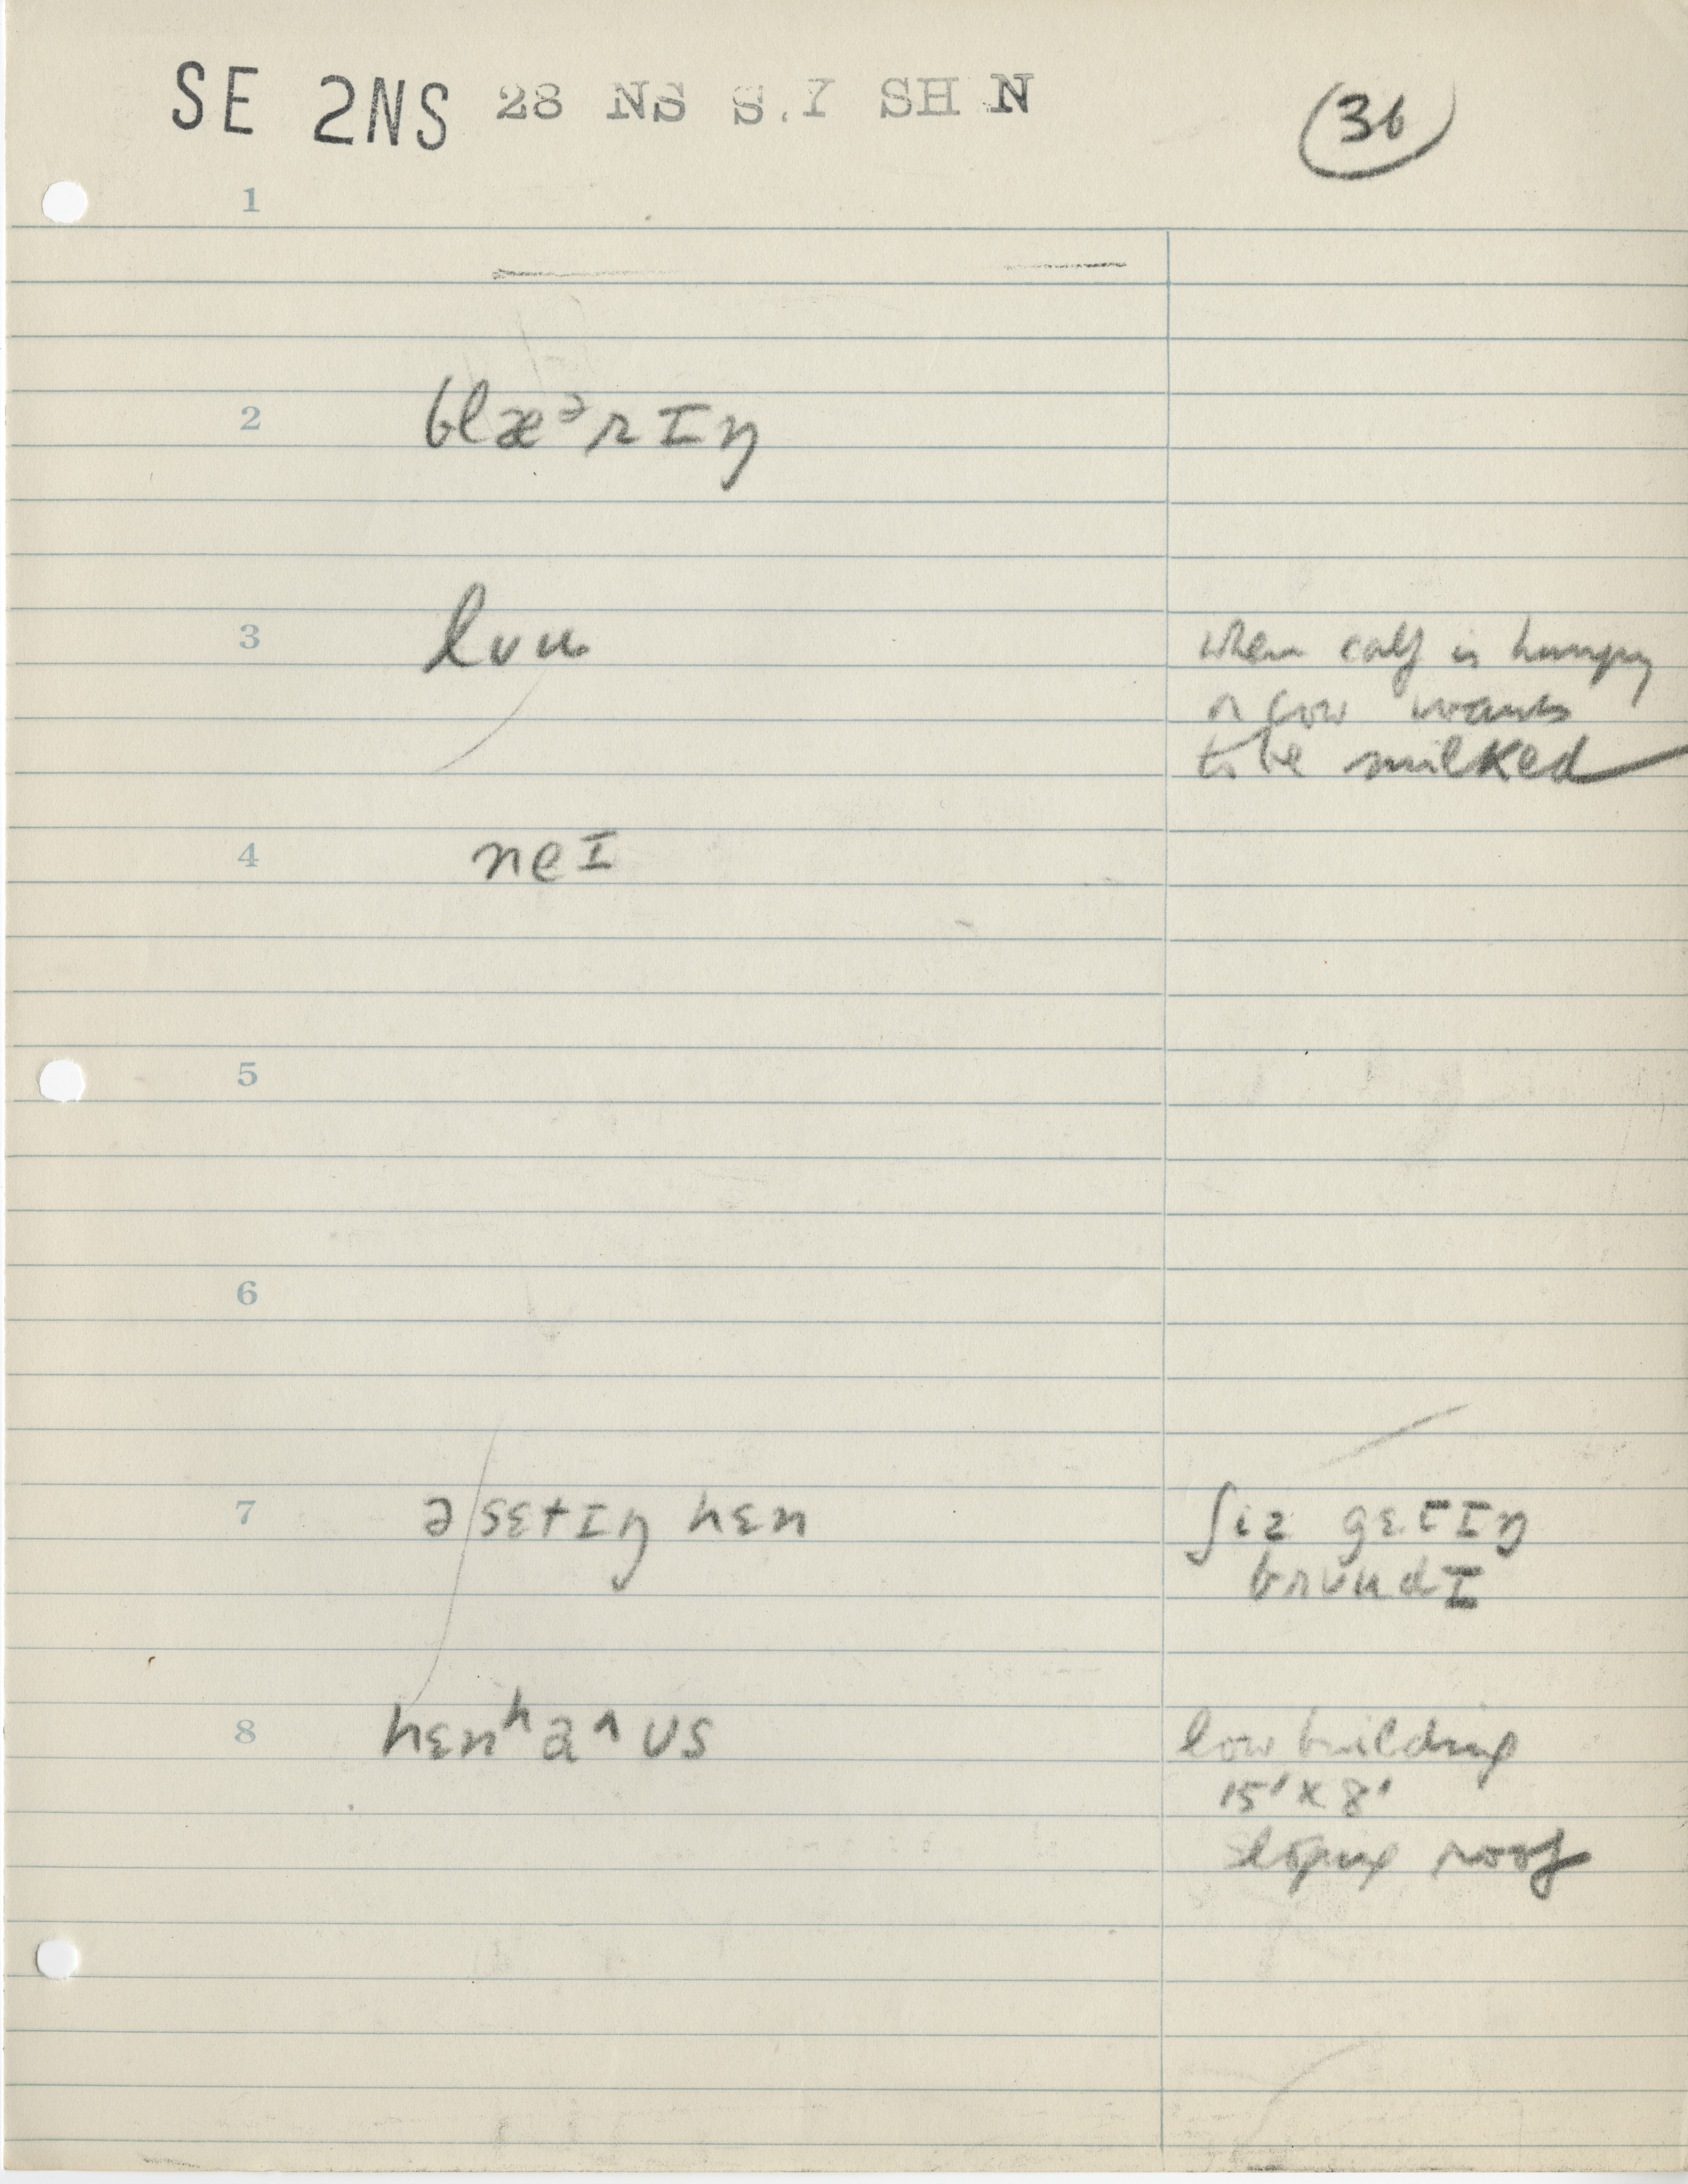 SE 2NS 28 NS S.Y SH N
36
1
2 blæᵊrɪŋ
3 lʊu
when calf is hungry
or cow wants
to be milked
4 neɪ
5
6
7 ə sɛtɪŋ hɛn
ʃiz gɛtɪŋ
brʊudɪ
8 hɛnʰa^ʊs
low building
15' x 8'
sloping roof